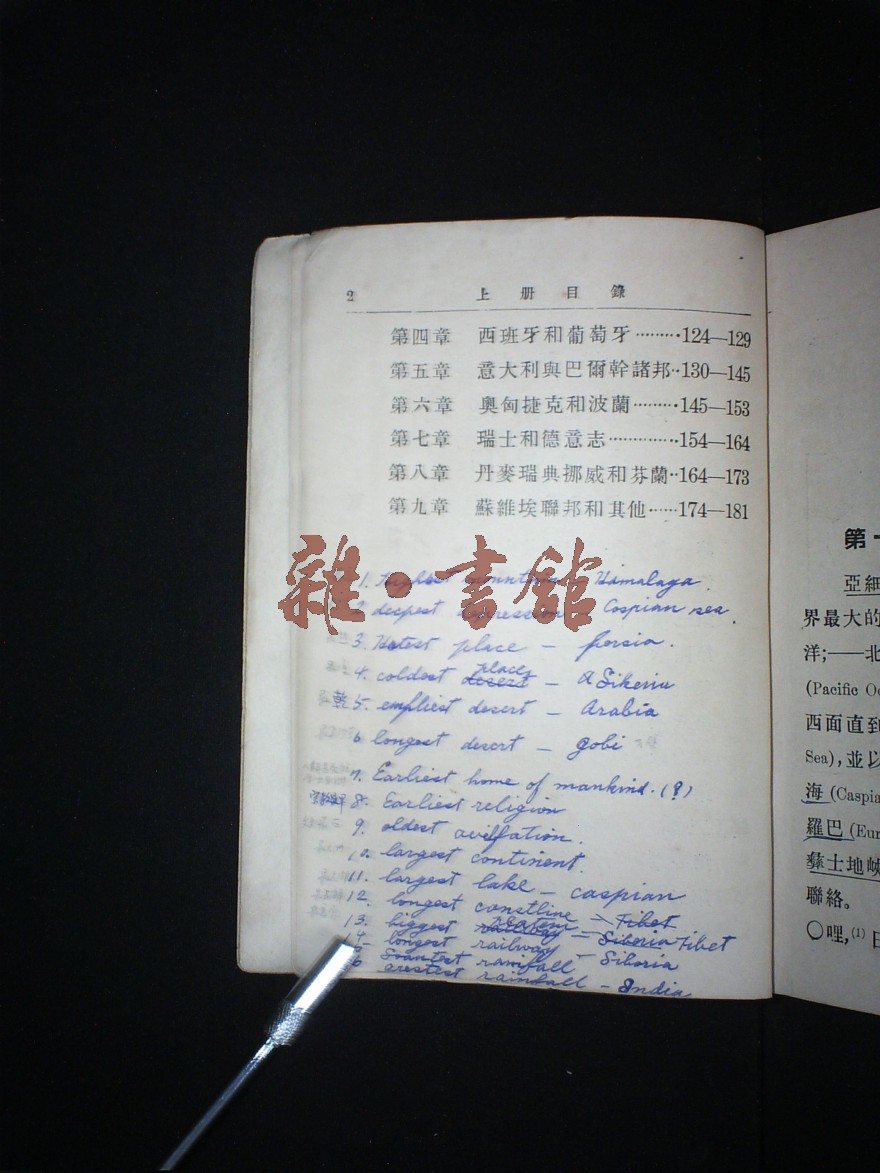 2 上册目錄
第四章 西班牙和葡萄牙………124—129
第五章 意大利與巴爾幹諸邦··130—145
第六章 奥匈捷克和波蘭………145—153
第七章 瑞士和德意志…………154—164
第八章 丹麥瑞典挪威和芬蘭··164—173
第九章 蘇維埃聯邦和其他……174—181
雜·書館
1. Himalaya
2. deepest depression Caspian sea
3. Hotest place – Persia.
4. coldest place – Siberia
5. empliest desert – Arabia
6. longest desert – gobi
7. Earliest home of mankind. (?)
8. Earliest religion
9. oldest
10. largest continent.
11. largest lake – caspian
12. longest – Tibet
13. biggest – Siberia Tibet
14. longest railway – Siberia
rainfall
rainfall – India
第一
亞細
界最大的
洋;——北
(Pacific Oc
西面直到
Sea),並以
海(Caspia
羅巴(Eur
彝士地峽
聯絡。
〇哩,(1)日